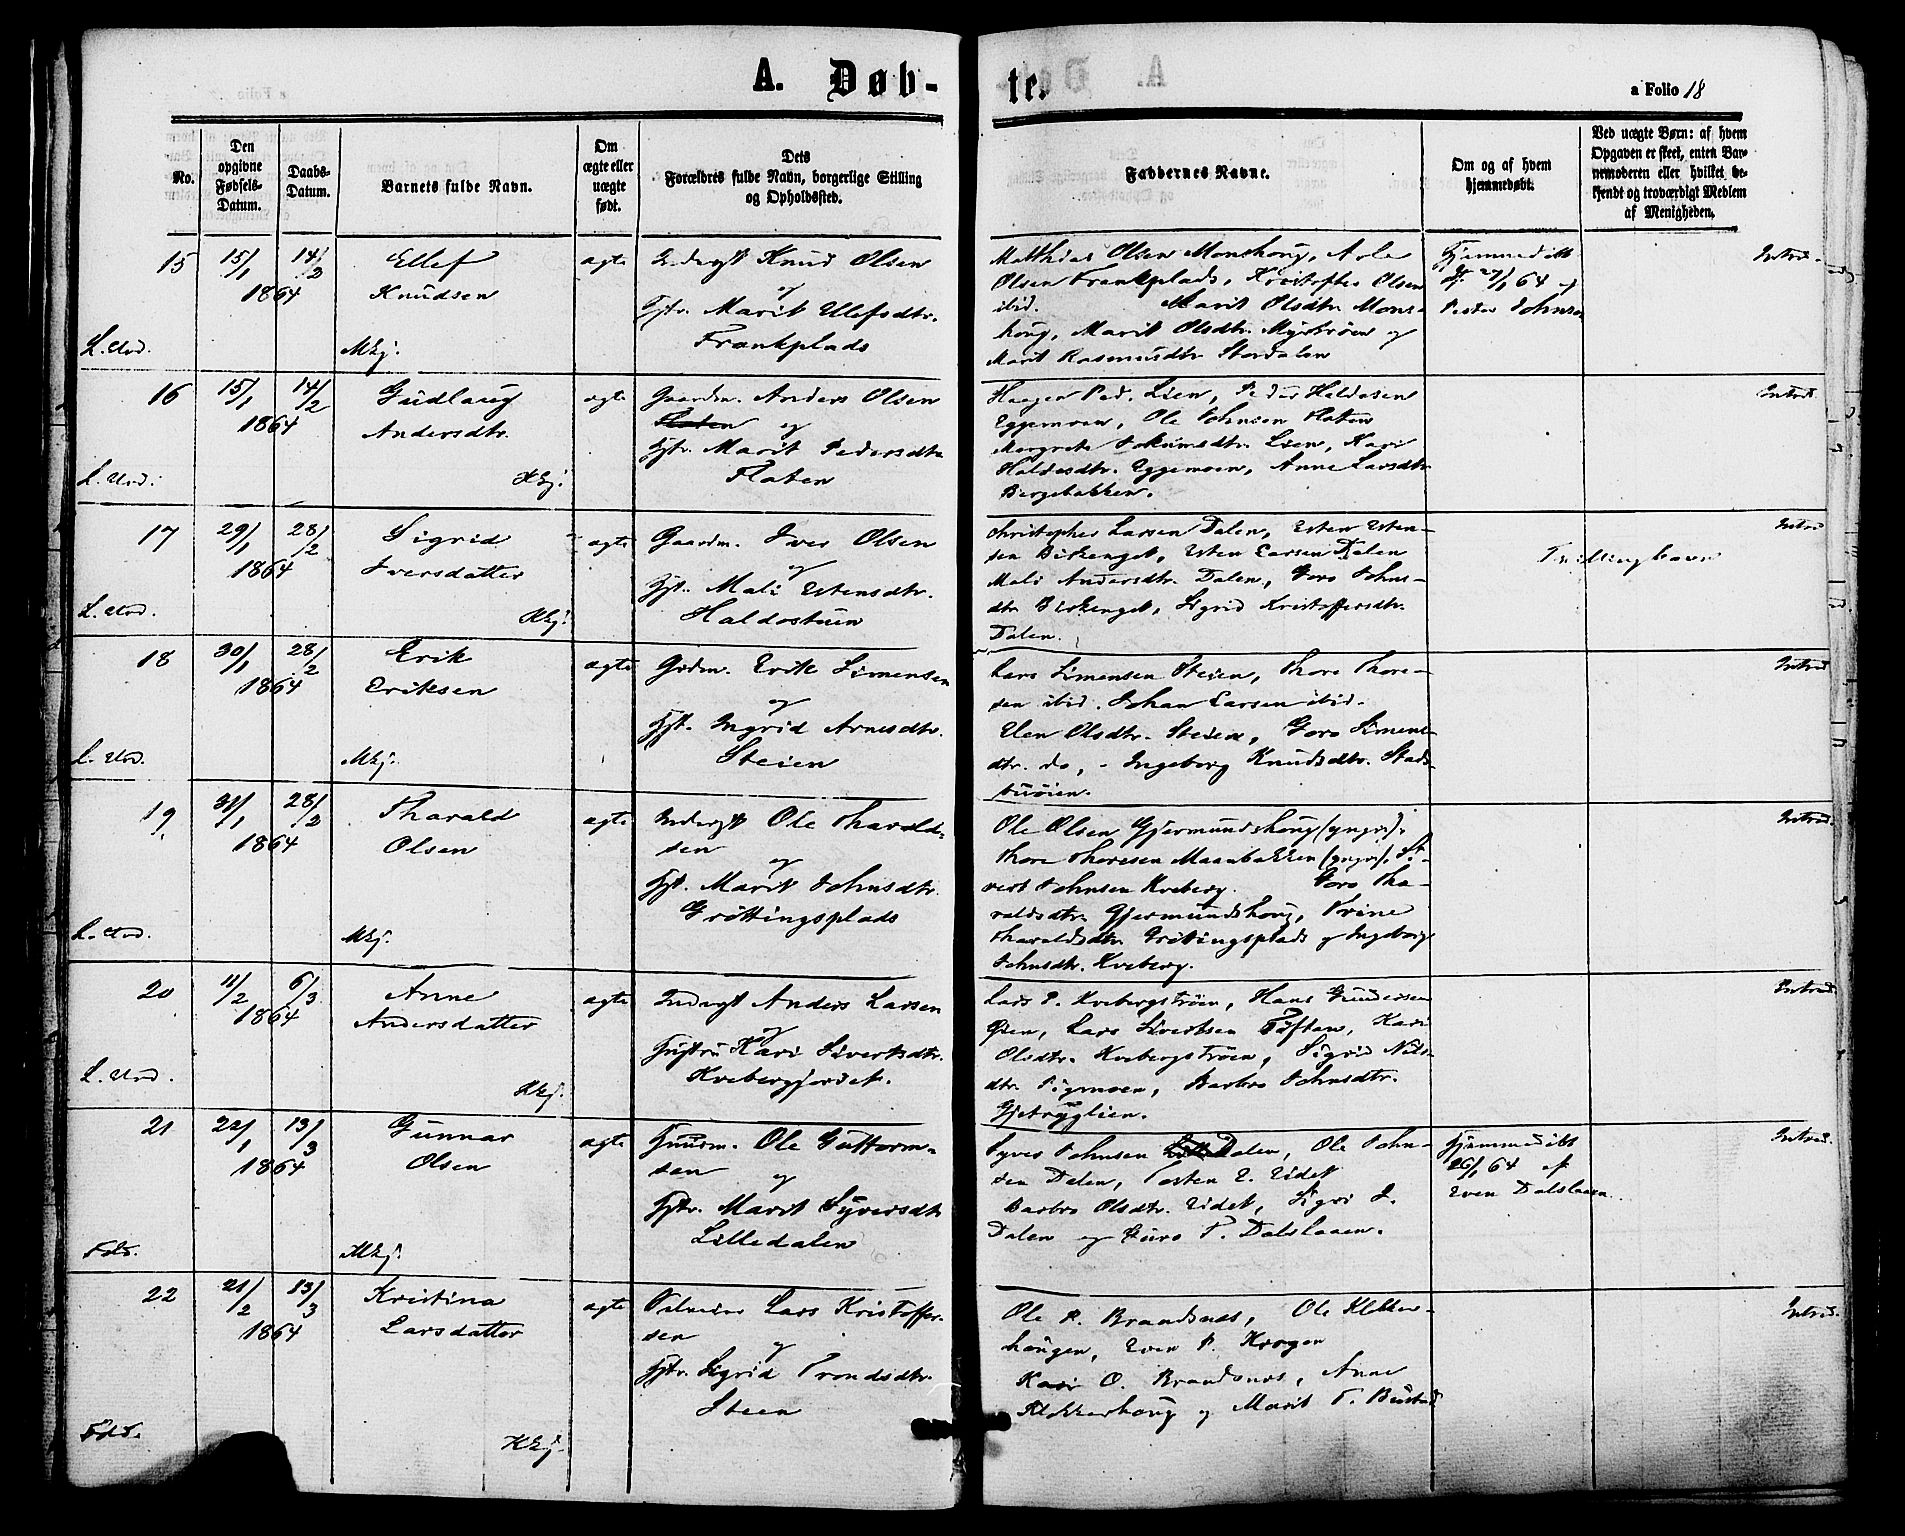 A. Døb-
te.
a Folio 18
No.
Den opgivne Fødsels-Datum.
Daabs-Datum.
Barnets fulde Navn.
Om ægte eller uægte født.
Dets Forældres fulde Navn, borgerlige Stilling og Opholdssted.
Faddernes Navne.
Om og af hvem hjemmedøbt.
Ved uægte Børn: af hvem Opgaven er skeet, enten Barnemoderen eller hvilket bekjendt og troværdigt Medlem af Menigheden.
15
15/1 14/2
1864
Ellef
Knudsen
L. Urd.
Mkj.
ægte
Inderst Knud Olsen
og
Hstr. Marit Ellefsdtr.
Frankplads
Matthias Olsen Monshoug, Aole
Olsen Frankplads, Kristoffer Olsen
ibid. Marit Olsdtr. Mons-
houg, Marit Olsdtr. Myrtrøen og
Marit Rasmusdtr. Stordalen
Hjemmedøbt
27/1 64 af
Peder Johnsen
Introd.
16
15/1 14/2
1864
Gudlaug
Andersdtr.
L. Urd.
Kkj.
ægte
Gaardm. Anders Olsen
og
Hstr. Marit Pedersdtr.
Floten
Haagen Ped. Lien, Peder Haldosen
Eggemoen, Ole Johnsen Floten
Margrete Joramsdtr. Lien, Kari
Haldosdtr. Eggemoen, Anne Larsdtr.
Bergebakken.
Introd.
17
29/1 28/2
1864
Sigrid
Iversdatter
L. Urd.
Kkj.
ægte
Gaardm. Iver Olsen
og
Hst. Mali Estensdtr.
Haldostuen
Christopher Larsen Dalen, Esten Esten-
sen Birkenget, Esten Larsen Dalen
Mali Andersdtr. Dalen, Goro Johns-
dtr. Birkenget, Sigrid Kristoffersdtr.
Dalen.
Tvillingbarn
Introd
18
30/1 28/2
1864
Erik
Eriksen
L. Urd.
Mkj.
ægte
Grdm. Erik Simensen
og
Hst. Ingrid Arnesdtr.
Steien
Lars Simensen Steien, Thore Thore-
sen ibid. Johan Larsen ibid.
Elen Olsdtr. Steien, Goro Simens-
dtr. do, - Ingeborg Knudsdtr. Stads-
buøien.
Introd
19
31/1 28/2
1864
Tharald
Olsen
L. Urd.
Mkj.
ægte
Inderst Ole Tharald-
sen
og
Hst. Marit Johnsdtr.
Grøttingsplads
Ole Olsen Gjermundshoug (yngre),
Thore Thoresen Maanbakken (yngre), Si-
vert Johnsen Kveberg. Goro Tha-
raldsdtr. Gjermundshoug, Trine
Tharaldsdtr. Grøtingsplads og Ingeborg
Johnsdtr. Kveberg.
Introd.
20
11/2 6/3
1864
Anne
Andersdatter
L. Urd.
Kkj.
ægte
Inderst Anders Larsen
og
Hustru Kari Sivertsdtr.
Kvebergjordet.
Lars P. Kvebergstrøen, Hans Gundersen
Øien, Lars Sivertsen Toften, Kari
Olsdtr. Kvebergstrøen, Sigrid Nils-
dtr. Tigmoen, Barbro Johnsdtr.
Gjetryglien.
Introd
21
22/1 13/3
1864
Gunnar
Olsen
Fold.
Mkj.
ægte
Huusm. Ole Guttorm-
sen
og
Hstr. Marit Syversdtr
Lilledalen
Syver Johnsen Dalen, Ole John-
sen Dalen, Torsten E. Eidet
Barbro Olsdtr. Eidet, Sigri J.
Dalen og Guro P. Dalslaaen.
Hjemmedøbt
26/1 64 af
Even Dalslaaen.
Introd.
22
21/2 13/3
1864
Kristina
Larsdatter
Fold.
Kkj.
ægte
Lars Kristoffer-
sen
og
Hstr. Sigrid Trondsdtr.
Steen
Ole R. Brandsnes, Ole Klokker-
haugen, Even P. Krogen
Kari O. Brandsnes, Anne
Klokkerhoug og Marit T. Bustad
Introd.